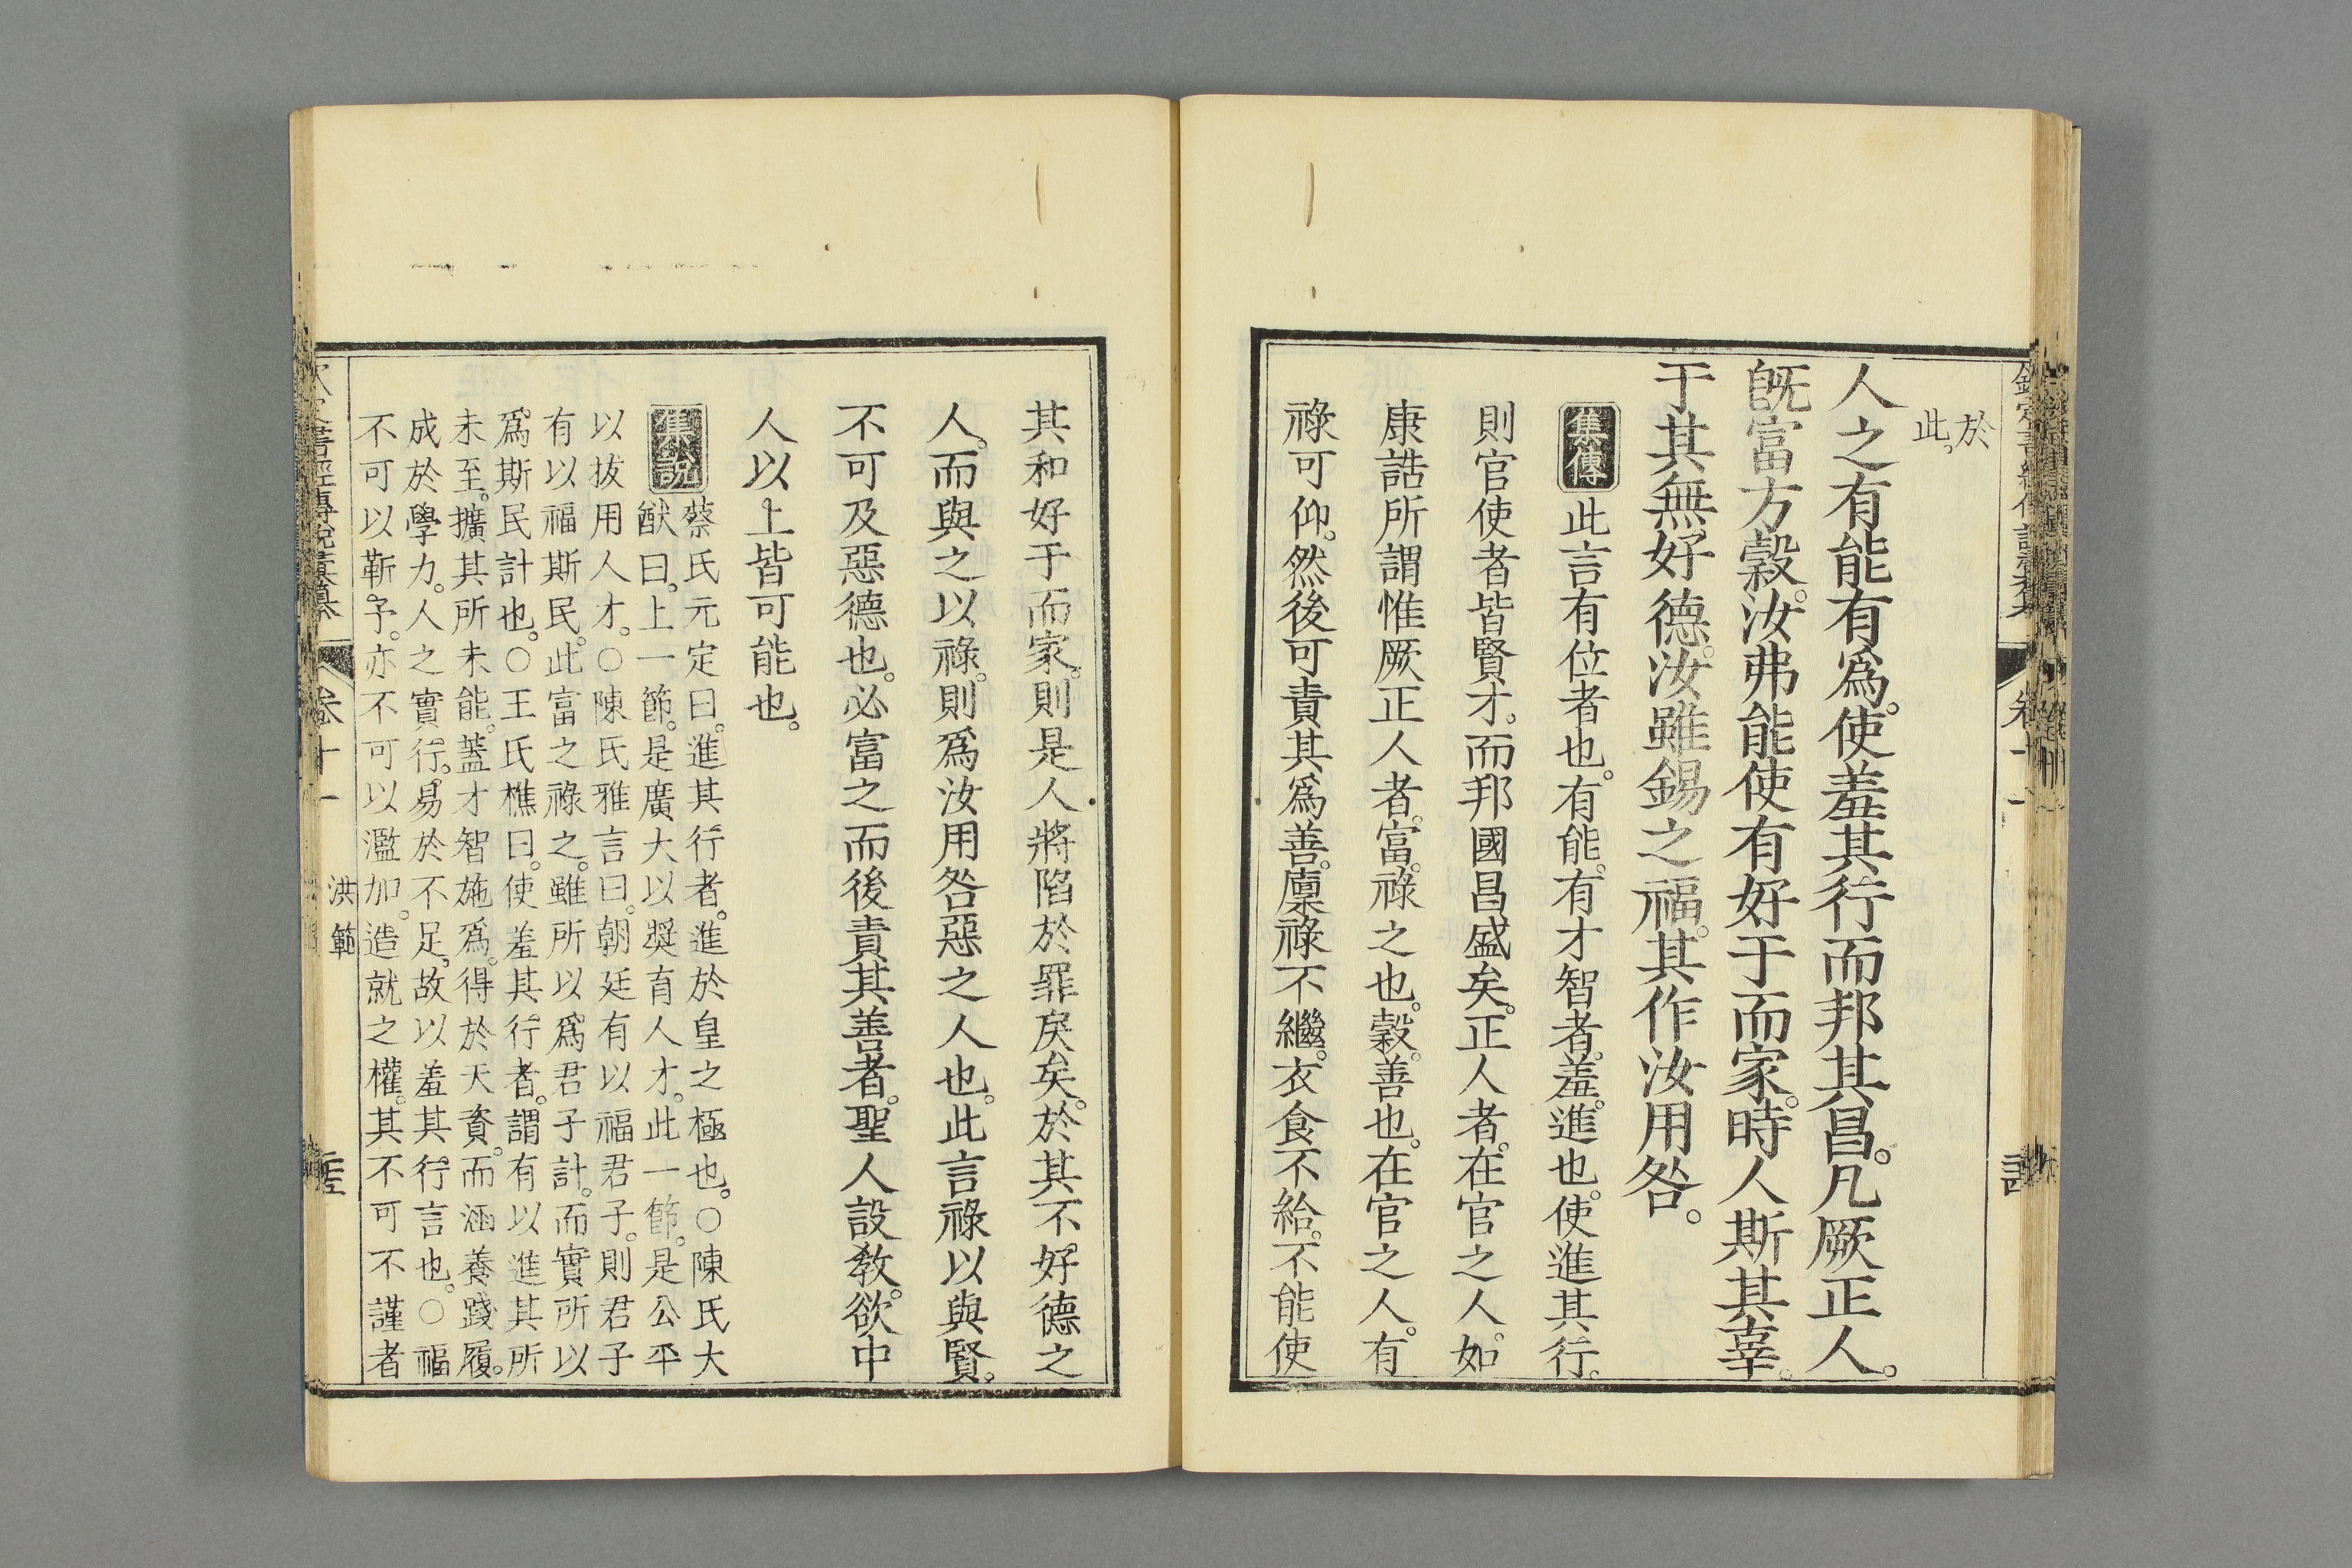 於
此。
人之有能有爲。使羞其行。而邦其昌。凡厥正人。
旣富方穀。汝弗能使有好于而家。時人斯其辜。
于其無好德。汝雖錫之福。其作汝用咎。
集傳 此言有位者也。有能。有才智者。羞。進也。使進其行。
則官使者皆賢才。而邦國昌盛矣。正人者。在官之人。如
康誥所謂惟厥正人者。富。祿之也。穀。善也。在官之人。有
祿可仰。然後可責其爲善。廩祿不繼。衣食不給。不能使
其和好于而家。則是人將陷於罪戾矣。於其不好德之
人。而與之以祿。則爲汝用咎惡之人也。此言祿以與賢。
不可及惡德也。必富之而後責其善者。聖人設敎。欲中
人以上皆可能也。
集說 蔡氏元定曰。進其行者。進於皇之極也。○陳氏大
猷曰。上一節。是廣大以奬育人才。此一節。是公平
以拔用人才。○陳氏雅言曰。朝廷有以福君子。則君子
有以福斯民。此富之祿之。雖所以爲君子計。而實所以
爲斯民計也。○王氏樵曰。使羞其行者。謂有以進其所
未至。擴其所未能。蓋才智施爲。得於天資。而涵養踐履。
成於學力。人之實行。易於不足。故以羞其行言也。○福
不可以靳予。亦不可以濫加。造就之權。其不可不謹者
書經傳說彙纂 卷十一 洪範